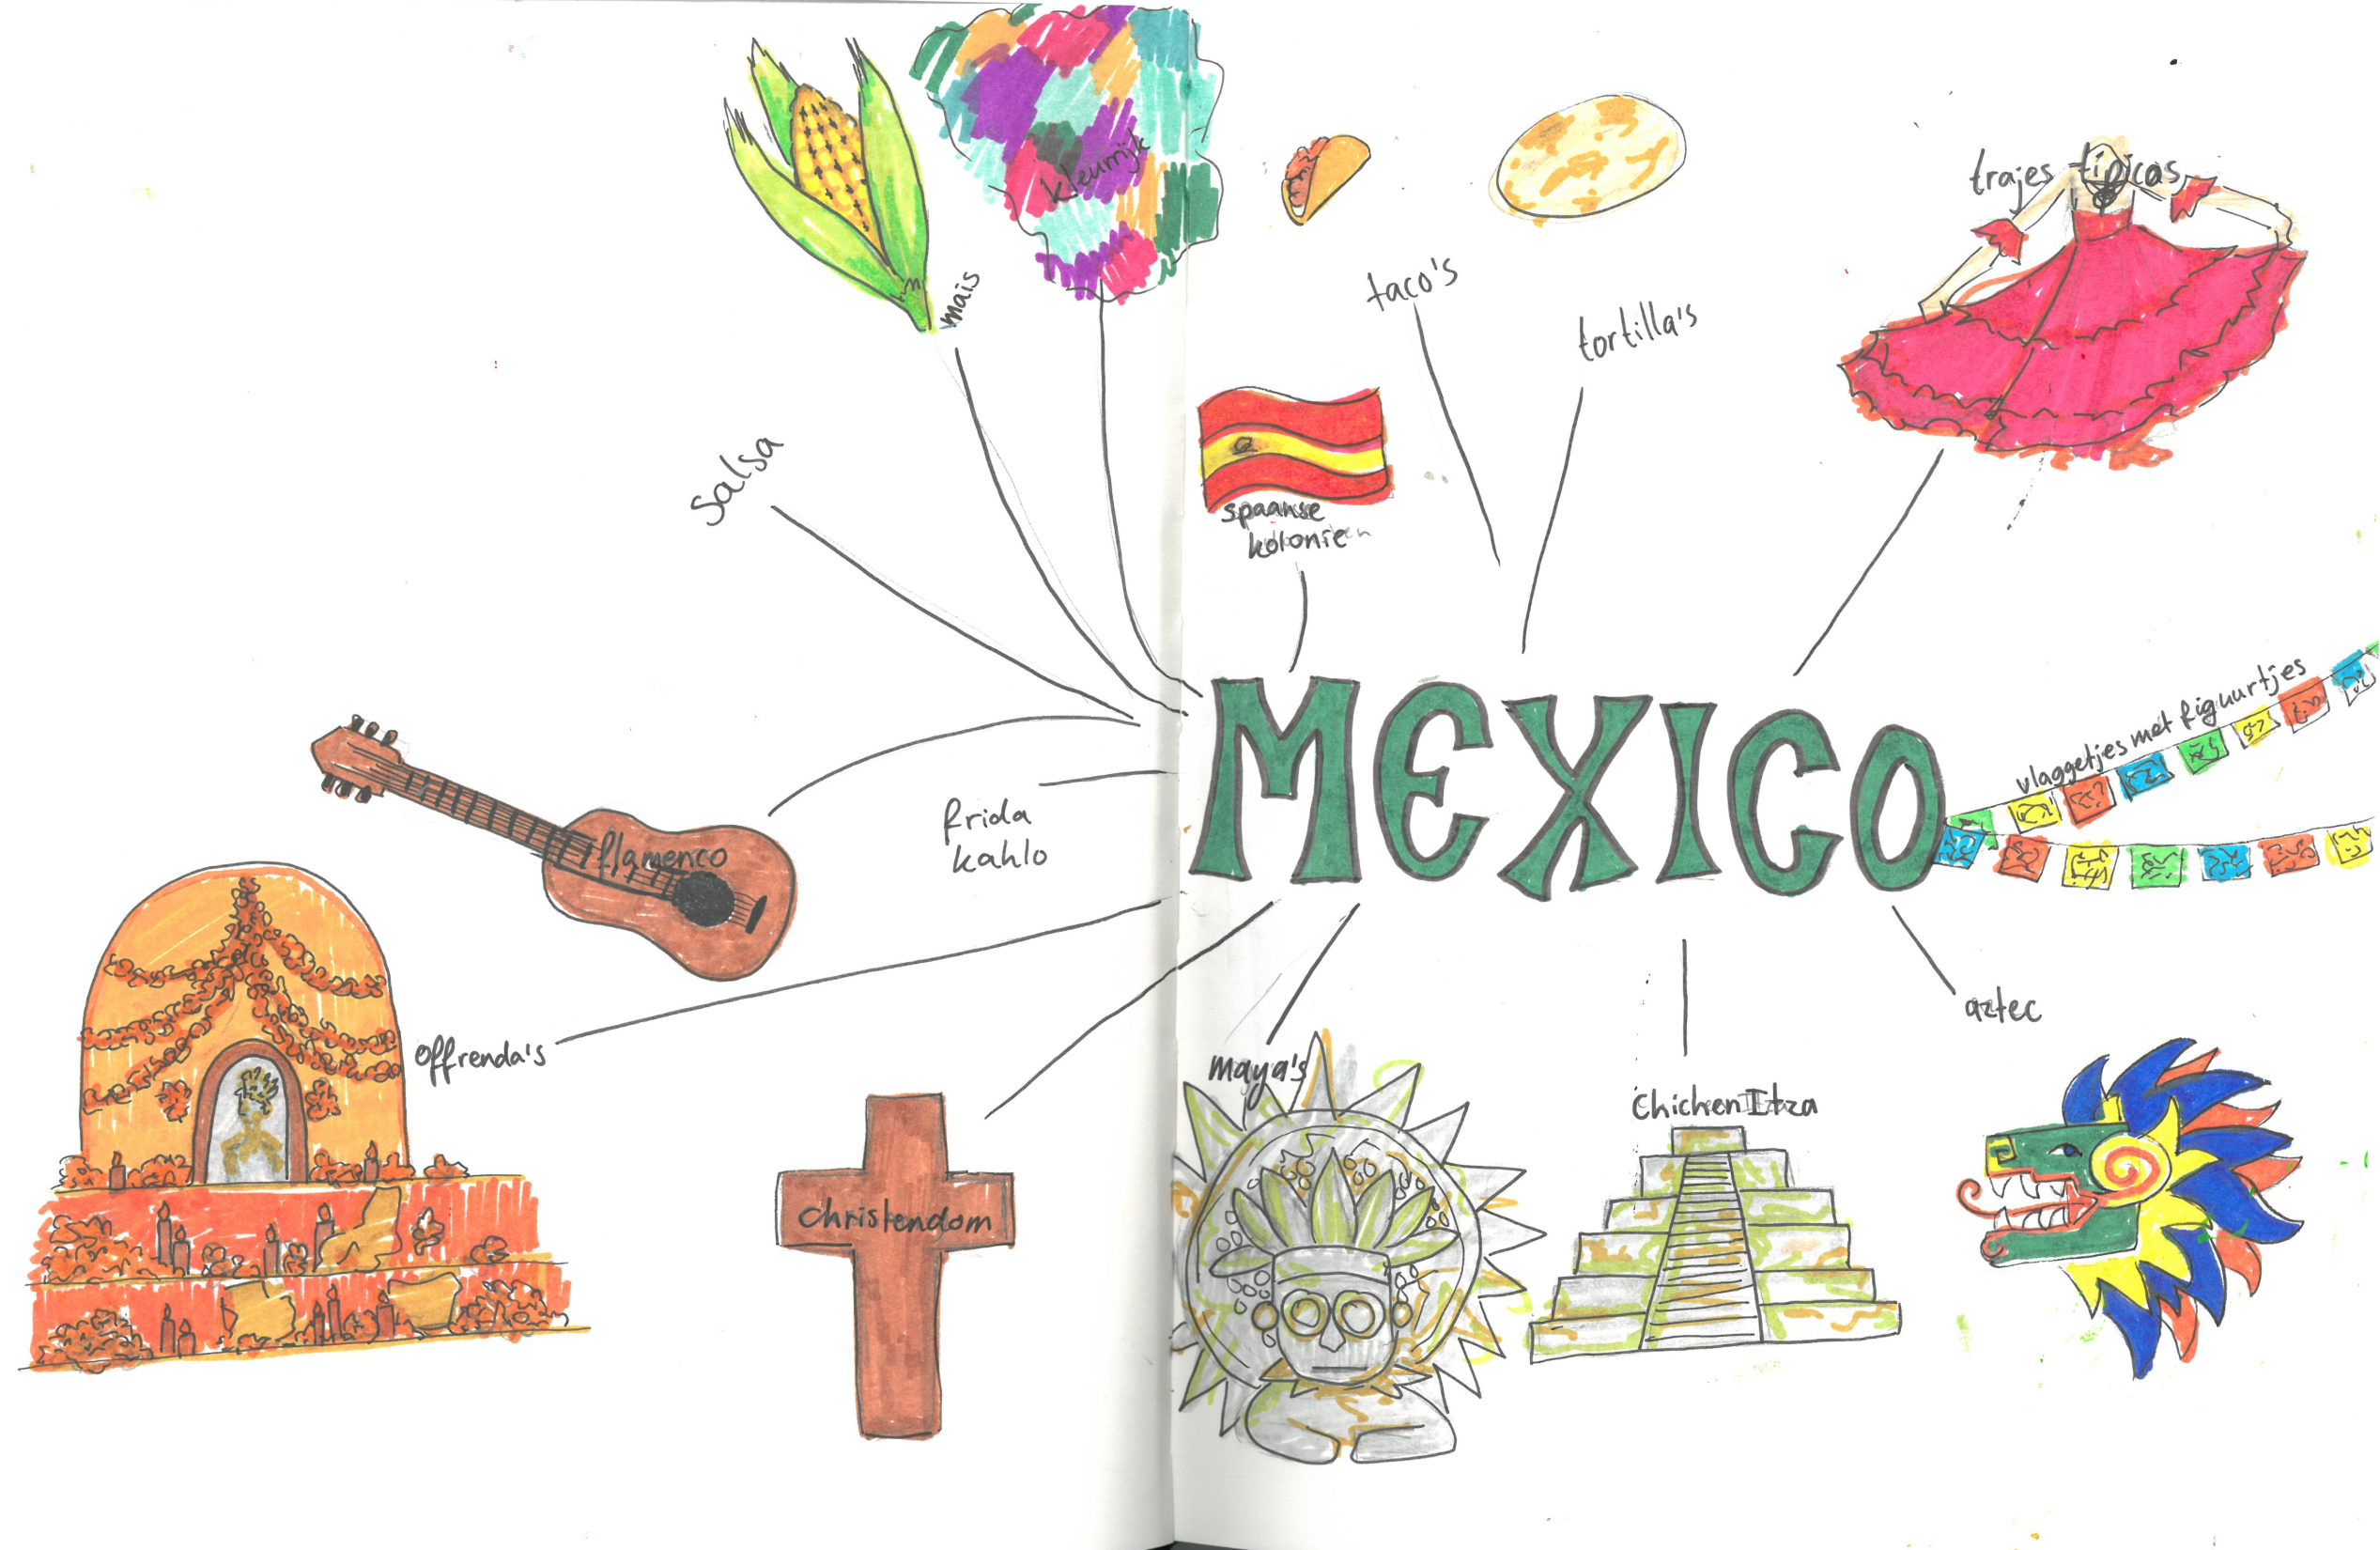 kleurrijk
trajes típicos
mais
taco's
tortilla's
salsa
spaanse
kolonie
vlaggetjes met figuurtjes
MEXICO
frida
kahlo
flamenco
offrenda's
aztec
maya's
Chichen Itza
christendom